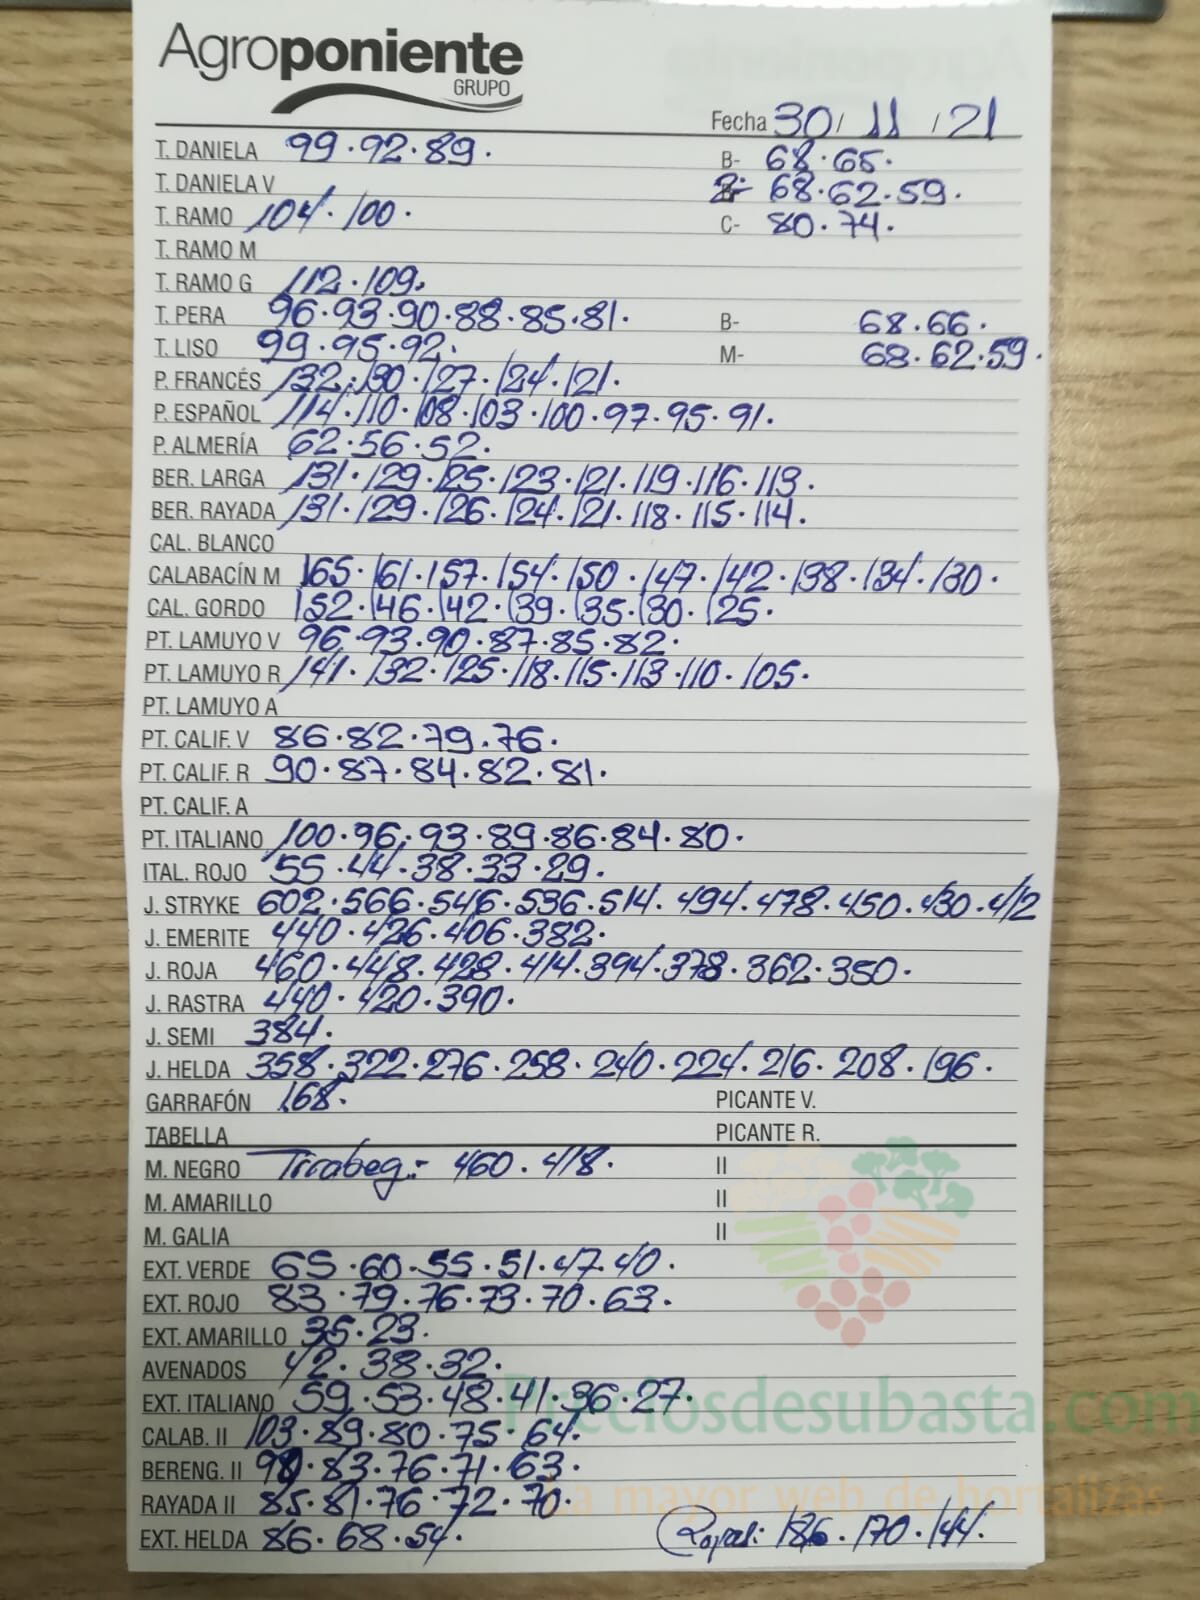 Agroponiente
GRUPO
Fecha 30/ 11 /21
T. DANIELA 99.92.89. B- 68.65.
T. DANIELA V 2- 68.62.59.
T. RAMO 104.100. C- 80.74.
T. RAMO M
T. RAMO G 112.109.
T. PERA 96.93.90.88.85.81. B- 68.66.
T. LISO 99.95.92. M- 68.62.59.
P. FRANCÉS 132.130.127.124.121.
P. ESPAÑOL 114.110.108.103.100.97.95.91.
P. ALMERÍA 62.56.52.
BER. LARGA 131.129.125.123.121.119.116.113.
BER. RAYADA 131.129.126.124.121.118.115.114.
CAL. BLANCO
CALABACÍN M 165.161.157.154.150.147.142.138.134.130.
CAL. GORDO 152.146.142.139.135.130.125.
PT. LAMUYO V 96.93.90.87.85.82.
PT. LAMUYO R 141.132.125.118.115.113.110.105.
PT. LAMUYO A
PT. CALIF. V 86.82.79.76.
PT. CALIF. R 90.87.84.82.81.
PT. CALIF. A
PT. ITALIANO 100.96.93.89.86.84.80.
ITAL. ROJO 55.44.38.33.29.
J. STRYKE 602.566.546.536.514.494.478.450.430.412
J. EMERITE 440.426.406.382.
J. ROJA 460.448.428.414.394.378.362.350.
J. RASTRA 440.420.390.
J. SEMI 384.
J. HELDA 358.322.276.258.240.224.216.208.196.
GARRAFÓN 168. PICANTE V.
TABELLA PICANTE R.
M. NEGRO Tirabeq:- 460.418. II
M. AMARILLO II
M. GALIA II
EXT. VERDE 65.60.55.51.47.40.
EXT. ROJO 83.79.76.73.70.63.
EXT. AMARILLO 35.23.
AVENADOS 42.38.32.
EXT. ITALIANO 59.53.48.41.36.27.
Preciosdesubasta.com
CALAB. II 103.89.80.75.64.
BERENG. II 90.83.76.71.63.
RAYADA II 85.81.76.72.70.
La mayor web de hortalizas
EXT. HELDA 86.68.54. Rojas: 186.170.144.